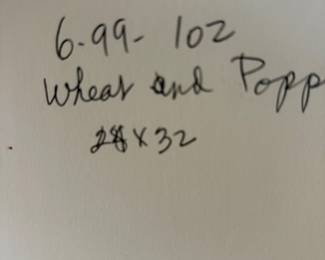 6-99- 102
Wheat and Popp
28 x 32